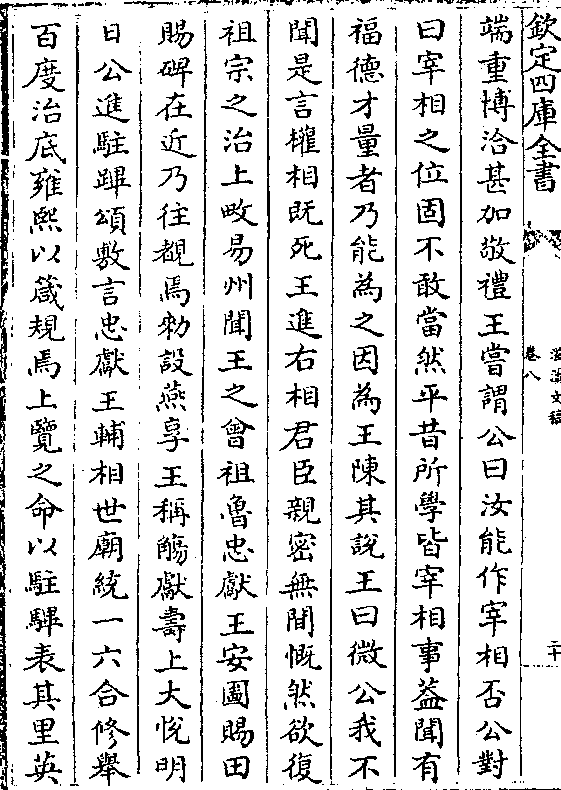 欽定四庫全書
滋溪文稿
卷八
二十
端重博洽甚加敬禮王嘗謂公曰汝能作宰相否公對
曰宰相之位固不敢當然平昔所學皆宰相事葢聞有
福德才量者乃能為之因為王陳其說王曰微公我不
聞是言權相既死王進右相君臣親密無間慨然欲復
祖宗之治上畋易州聞王之曾祖魯忠獻王安圖賜田
賜碑在近乃往觀焉勑設燕享王稱觴獻壽上大悅明
日公進駐蹕頌敷言忠獻王輔相世廟統一六合修舉
百度治底雍熙以箴規焉上覽之命以駐驆表其里英